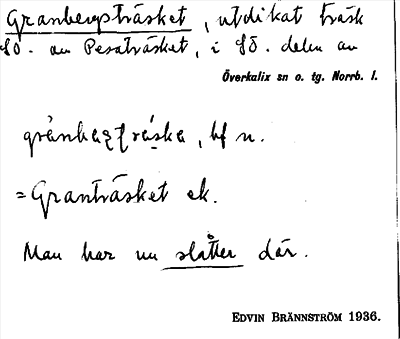 Granbergsträsket, utdikat träsk
SO. om Pesaträsket, i SÖ. delen av
Överkalix sn o. tg. Norrb. l.
bf n.
= Granträsket ek.
Man har nu slåtter där.
EDVIN BRÄNNSTRÖM 1936.